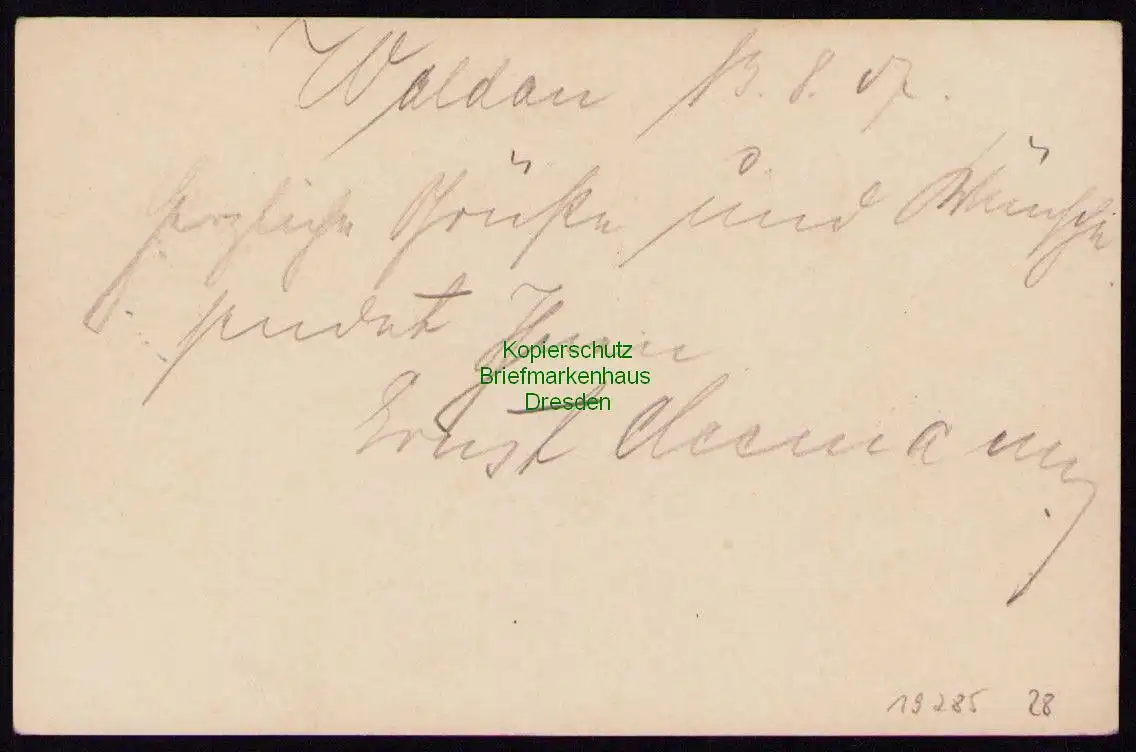 Waldau 13.8.07.
Herzliche Grüße und Wünsche
sendet Ihnen
Kopierschutz
Briefmarkenhaus
Dresden
Ernst
19285 28